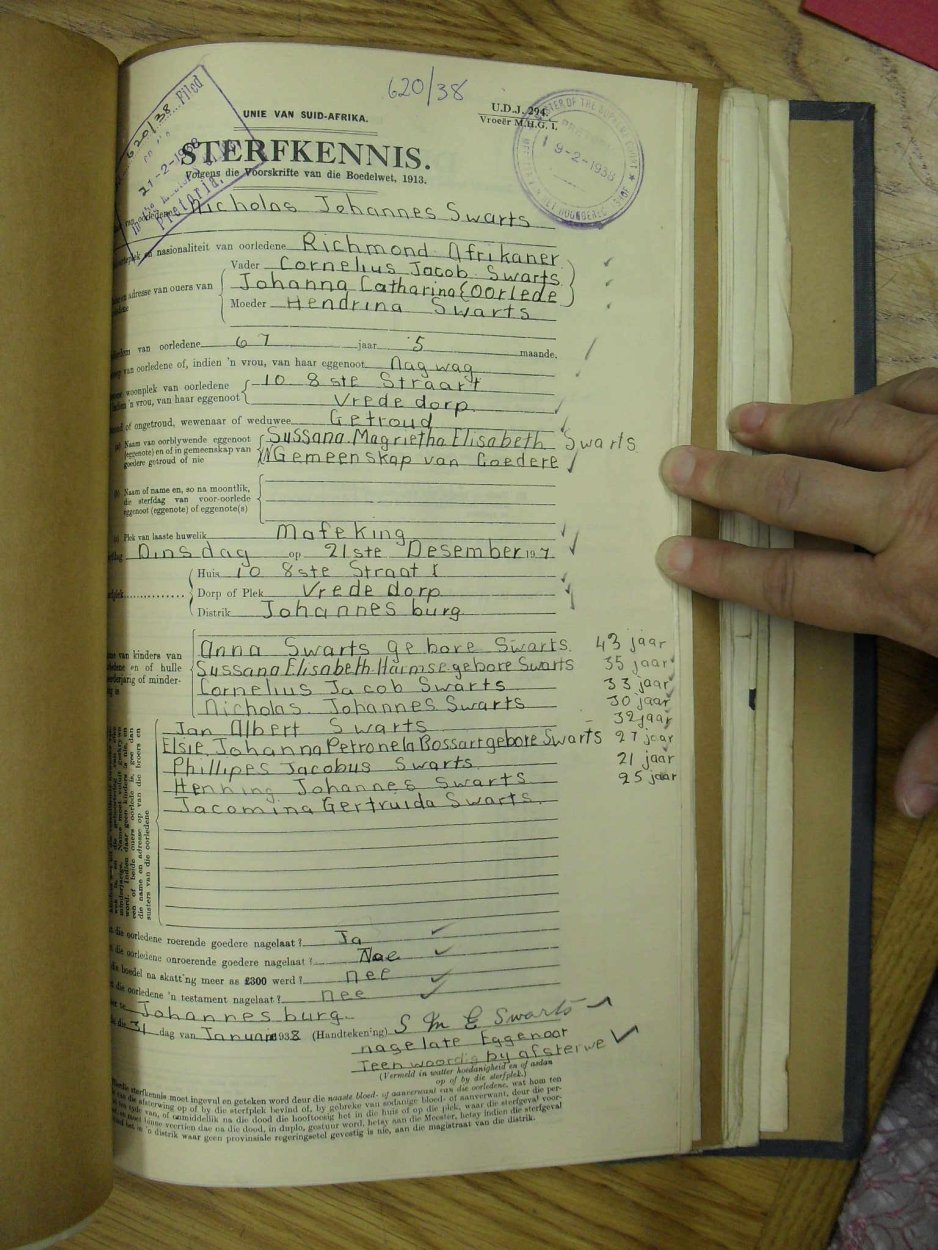 620/38
UNIE VAN SUID-AFRIKA.
U.D.J. 294.
Vroeër M.H.G. 1.
620/38 Filed
21-2-1938
Pretoria.
MASTER OF THE SUPREME COURT
19-2-1938
STERFKENNIS.
Volgens die Voorskrifte van die Boedelwet, 1913.
van oorledene Nicholas Johannes Swarts
en nasionaliteit van oorledene Richmond Afrikaner
Vader Cornelius Jacob Swarts
adresse van ouers van Johanna Catharina (Oorlede)
Moeder Hendrina Swarts
van oorledene 67 jaar 5 maande.
van oorledene of, indien 'n vrou, van haar eggenoot Nagwag
woonplek van oorledene 10 8ste Straart
'n vrou, van haar eggenoot Vrede dorp
of ongetroud, wewenaar of weduwee Getroud
(a) Naam van oorblywende eggenoot Sussana Magrietha Elisabeth Swarts
(eggenote) en of in gemeenskap van
goedere getroud of nie Gemeenskap van Goedere
(b) Naam of name en, so na moontlik,
die sterfdag van voor-oorlede
eggenoot (eggenote) of eggenote(s)
(c) Plek van laaste huwelik Mafeking
Dinsdag op 21ste Desember 1937
Huis 10 8ste Straat
Dorp of Plek Vrede dorp
Distrik Johannes burg
van kinders van Anna Swarts gebore Swarts 43 jaar
en of hulle Sussana Elisabeth Harmse gebore Swarts 35 jaar
of minder- Cornelius Jacob Swarts 33 jaar
Nicholas Johannes Swarts 30 jaar
Jan Albert Swarts 32 jaar
Elsie Johanna Petronela Bossart gebore Swarts 27 jaar
Phillipes Jacobus Swarts 21 jaar
Henning Johannes Swarts 25 jaar
Jacomina Gertruida Swarts
een of beide ouers oorlede is, gee dan
die name en adresse op van die broers en
susters van die oorledene
die oorledene roerende goedere nagelaat? Ja
die oorledene onroerende goedere nagelaat? Nee
boedel na skatt'ng meer as £300 werd? nee
die oorledene 'n testament nagelaat? nee
Johannesburg
die 31 dag van Januarie 1938 (Handtekening) S M E Swarts
nagelate Eggenoot
Teenwoordig by afsterwe
(Vermeld in watter hoedanigheid en of aedan
op of by die sterfplek.)
sterfkennis moet ingevul en geteken word deur die naaste bloed- of aanverwant van die oorledene, wat hom ten
tyde van die afsterwing op of by die sterfplek bevind of, by gebreke van sodanige bloed- of aanverwant, deur die per-
of onmiddelik na die dood die hooftoesig het in die huis of op die plek, waar die sterfgeval voor-
binne veertien dae na die dood, in duplo, gestuur word, hetsy aan die Meester, hetsy indien die sterfgeval
'n distrik waar geen provinsiale regeringsetel gevestig is nie, aan die magistraat van die distrik.